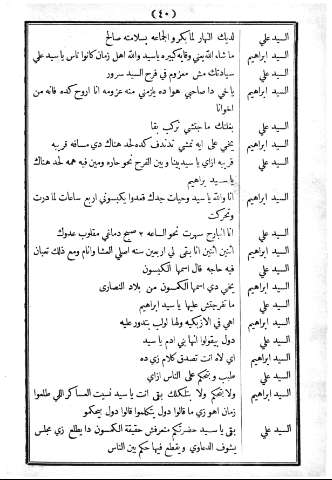 (٤٠)
السيد علي لديك النهار لما بكر والجماعه بسلامته صالح
السيد ابراهيم ما شاء الله بني وقايه كبيره ياسيد والله اهل زمان كانوا ناس ياسيد علي
السيد علي سيادتك مش معزوم في فرح السيد سرور
السيد ابراهيم ياخي دا صاحبي هوا ده يلزمني منه عزومه انا اروح كده فانه من
اخوانا
السيد علي بغلتك ما جتشي تركب بقا
السيد ابراهيم يخي على ايه نمشي نتدندف كده لحد هناك دي مسافه قريبه
السيد علي قريبه ازاي ياسيد بينا وبين الفرح نحو حاره ومين فيه همه لحد هناك
يا سيد ابراهيم
السيد ابراهيم انا والله ياسيد وحيات جدك قعدوا يكبسوني اربع ساعات لما درت
وتحركت
السيد علي انا البارح سهرت نحو الساعه ٢ صبح دماغي مقلوب عدوك
السيد ابراهيم اتنين اتنين انا بقى لي اربعين سنه اصلي العشا وانام ومع ذلك تعبان
السيد علي فيه حاجه قال اسمها الكمسون
السيد ابراهيم يخي دي اسمها الكمسون من بلاد النصارى
السيد علي ما تفرجتش عليها ياسيد ابراهيم
السيد ابراهيم اهي في الازبكيه ولها لولب بتدور عليه
السيد علي دول بيقولوا انها بني ادم ياسيد
السيد ابراهيم اي لاه انت تصدق كلام زي ده
السيد علي طيب وبتحكم على الناس ازاي
السيد ابراهيم ولا بتحكم ولا بتلكلك بقى انت ياسيد نسيت العساكر اللي طلعوا
زمان اهو زي ما قالوا دول يتكلموا قالوا دول يحكمو
السيد علي بقى ياسيد حضرتكم متعرفش حقيقة الكمسون دا يطلع زي مجلس
يشوف الدعاوي ويقطع فيها حكم بين الناس